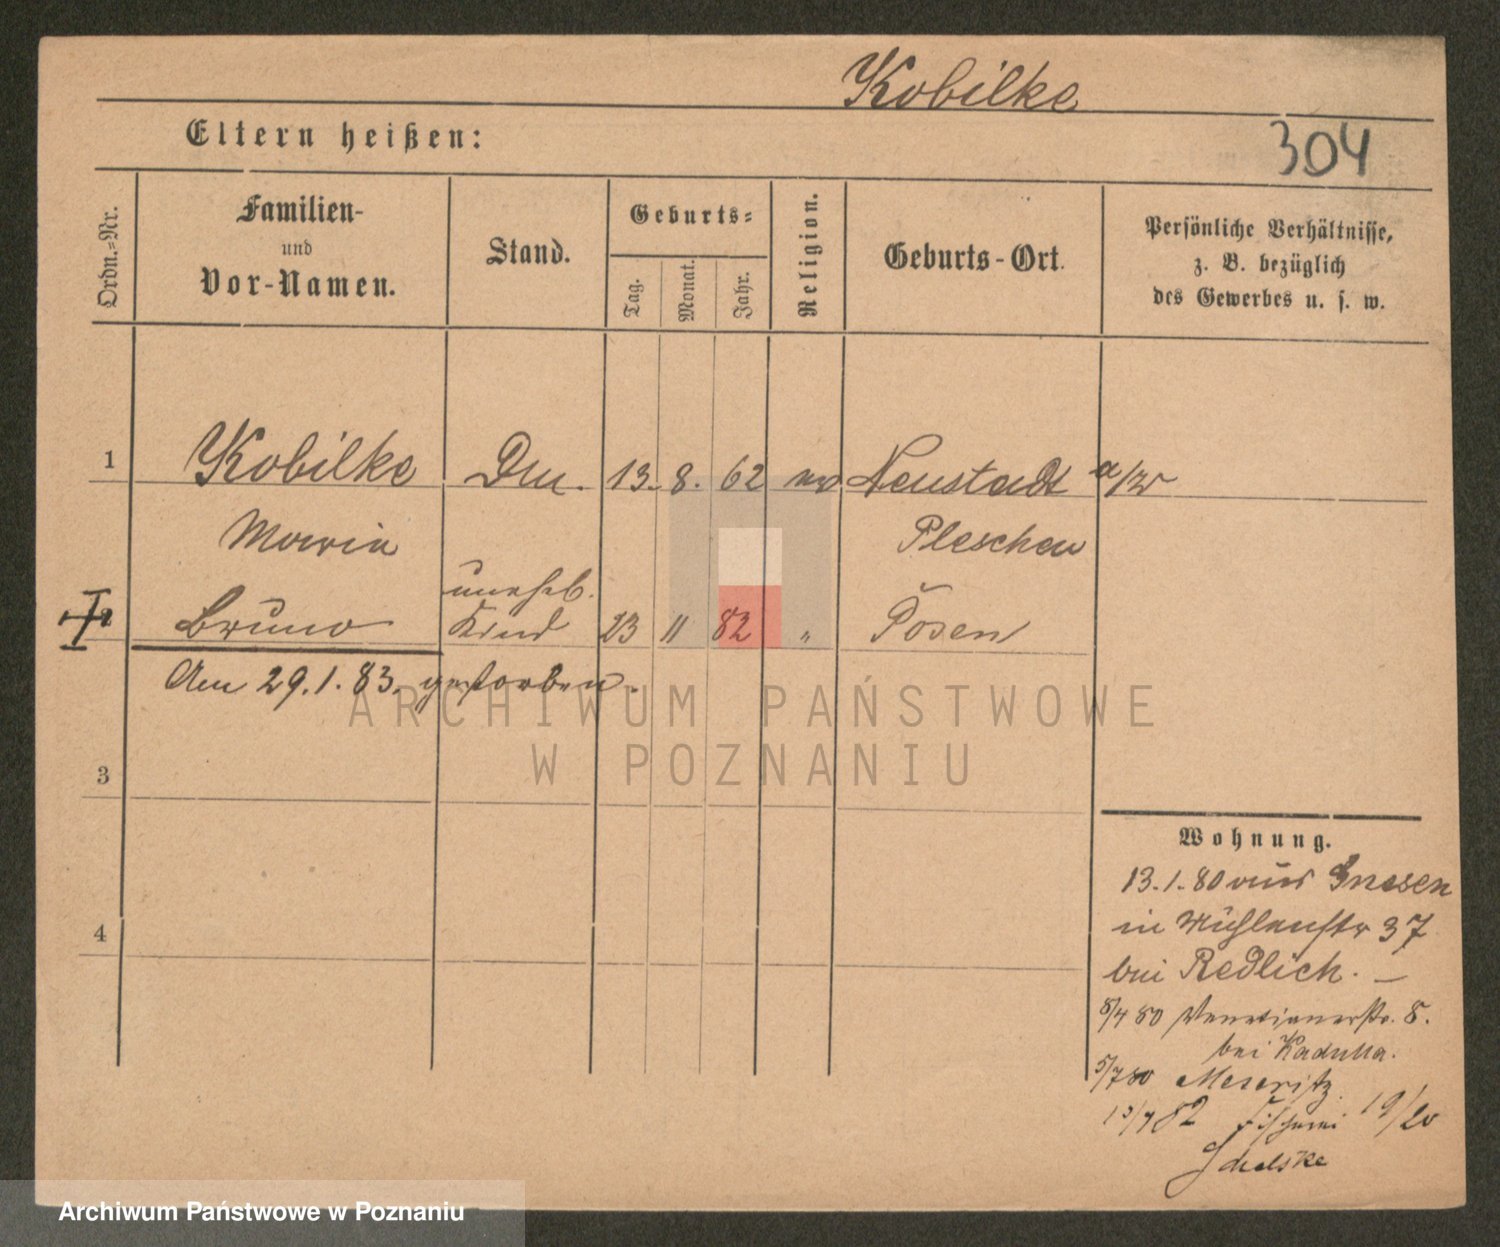 Kobilke
Eltern heißen:
304
Ordn.=Nr.
Familien-
und
Vor-Namen.
Stand.
Geburts=
Tag.
Monat.
Jahr.
Religion.
Geburts-Ort.
Persönliche Verhältnisse,
z. B. bezüglich
des Gewerbes u. s. w.
1 Kobilke 13. 8. 62 Neustadt a/W
Maria Pleschen
unehl.
Bruno Kind 23 11 82 " Posen
Am 29.1.83. gestorben.
3
4
Wohnung.
13.1.80 aus Gnesen
in Mühlenstr 37
bei Redlich. —
8/4 80 Venetianerstr. 8.
bei Kadulla.
5/7 80 Meseritz.
82 Fischerei 19/20
ARCHIWUM PAŃSTWOWE
W POZNANIU
Archiwum Państwowe w Poznaniu